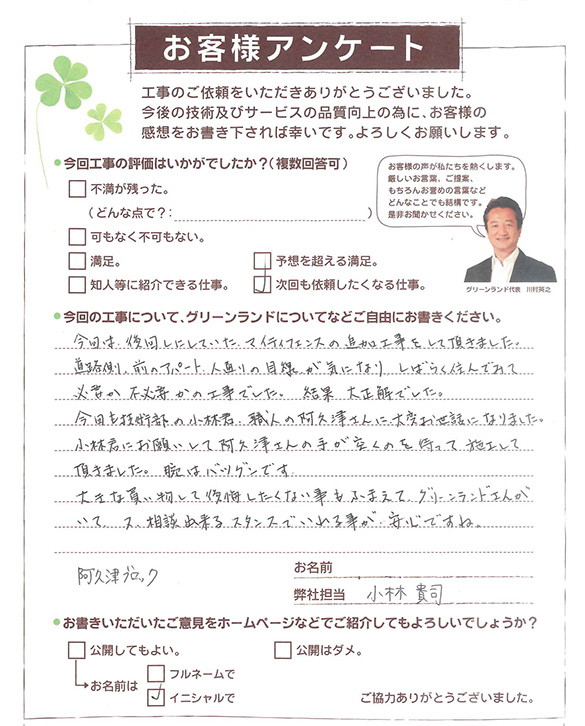 お客様アンケート
工事のご依頼をいただきありがとうございました。
今後の技術及びサービスの品質向上の為に、お客様の
感想をお書き下されば幸いです。よろしくお願いします。
今回工事の評価はいかがでしたか?(複数回答可)
不満が残った。
(どんな点で?: )
可もなく不可もない。
満足。
予想を超える満足。
知人等に紹介できる仕事。
次回も依頼したくなる仕事。
お客様の声が私たちを熱くします。
厳しいお言葉、ご提案、
もちろんお誉めの言葉など
どんなことでも結構です。
是非お聞かせください。
グリーンランド代表 川村英之
今回の工事について、グリーンランドについてなどご自由にお書きください。
今回は、後回しにしていた、マイティフェンスの追加工事をして頂きました。
道路側、前のアパート、人通りの目線が気になり、しばらく住んでみて
必要か不必要かの工事でした。結果大正解でした。
今回も技術部の小林君、職人の阿久津さんに、大変お世話になりました。
小林君にお願いして阿久津さんの手が空くのを待って施工して
頂きました。腕はバツグンです。
大きな買い物して後悔したくない事もふまえて、グリーンランドさんが
いて、又、相談出来るスタンスでいれる事が、安心ですね。
阿久津ブロック
お名前
弊社担当 小林 貴司
お書きいただいたご意見をホームページなどでご紹介してもよろしいでしょうか?
公開してもよい。
公開はダメ。
お名前は
フルネームで
イニシャルで
ご協力ありがとうございました。